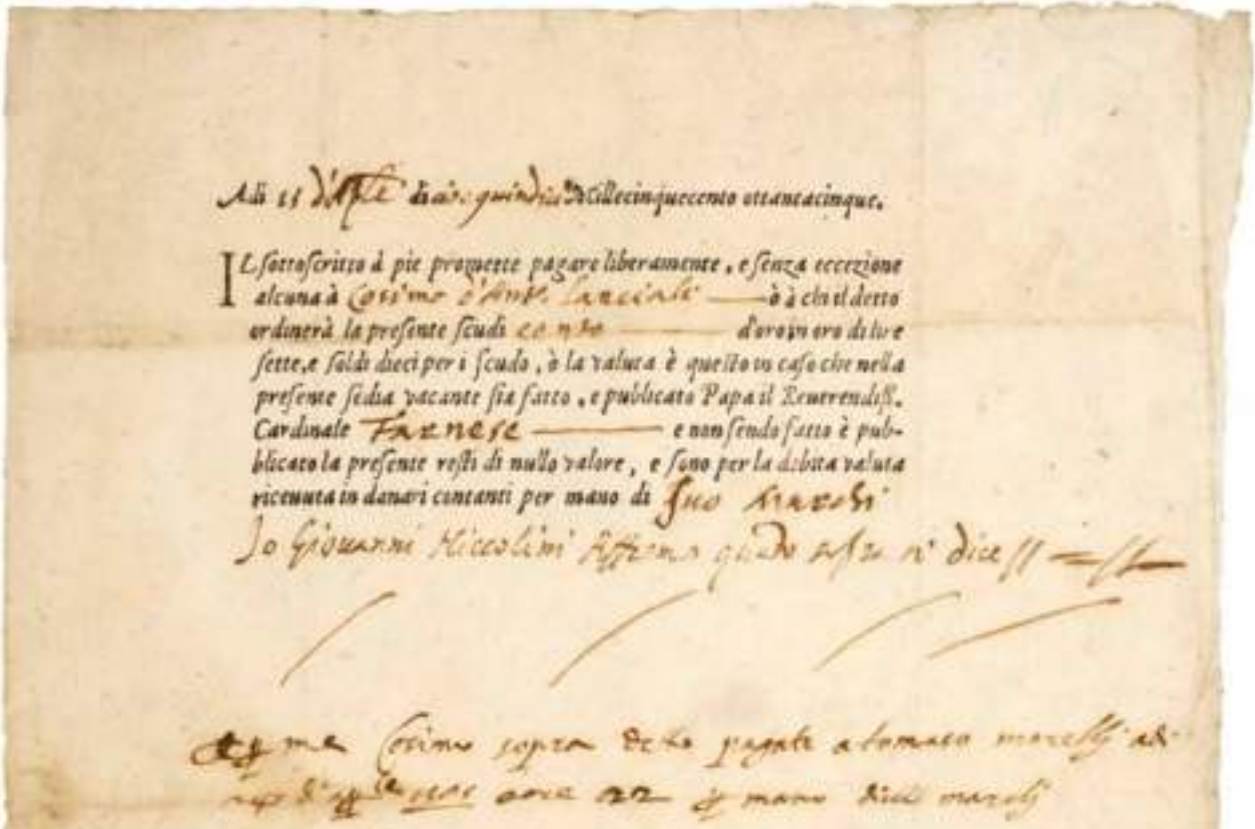 Adi 15 d'Aple di Millecinquecento ottantacinque.
IL sottoscritto à pie promette pagare liberamente, e senza eccezione
alcuna à Cosimo d'Anto. ò à chi il detto
ordinerà la presente scudi cento d'oro in oro di lire
sette, e soldi dieci per i scudo, ò la valuta è questo in caso che nella
presente sedia vacante sia fatto, e publicato Papa il Reverendiss.
Cardinale Farnese e non sendo fatto è pub-
blicato la presente resti di nullo valore, e sono per la debita valuta
ricevuta in danari contanti per mano di suo
Io Giovanni Niccolini Affermo quanto sopra si dice
me Cosimo sopra detto pagate a tomaso
ore 22 mano